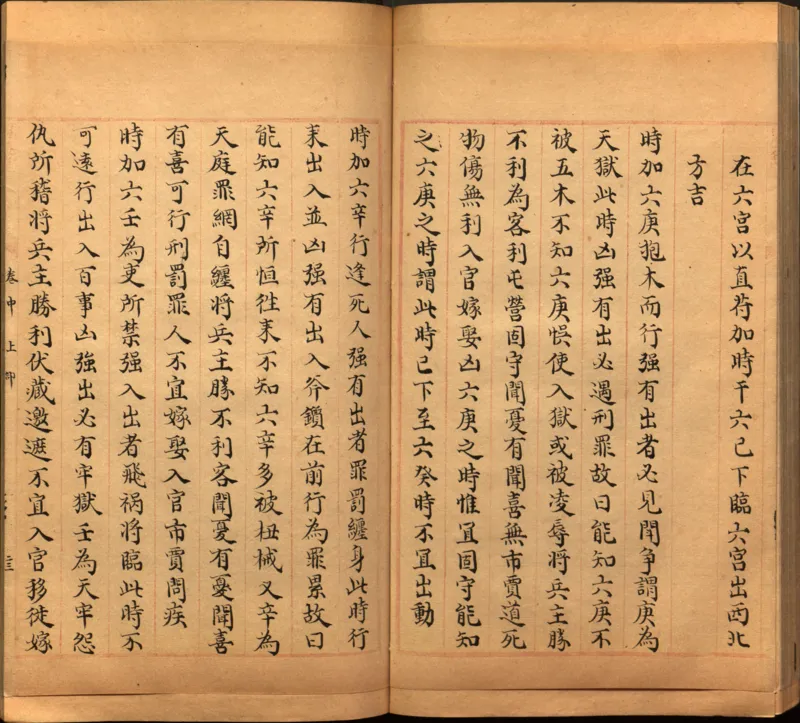 在六宫以直苻加時干六己下臨六宫出西北
方吉
時加六庚抱木而行强有出者必見閗争謂庚為
天獄此時凶强有出必遇刑罪故曰能知六庚不
被五木不知六庚悮使入獄或被凌辱將兵主勝
不利為客利屯營固守聞憂有聞喜無市賈道死
物傷無利入官嫁娶凶六庚之時惟宜固守能知
之六庚之時謂此時已下至六癸時不宜出動
時加六辛行逢死人强有出者罪罰纏身此時行
来出入並凶强有出入斧鎖在前行為罪累故曰
能知六辛所恒徃来不知六辛多被杻械又辛為
天庭罪網自纏將兵主勝不利客聞憂有憂聞喜
有喜可行刑罰罪人不宜嫁娶入官市賈問疾
時加六壬為吏所禁强入出者飛祸將臨此時不
可遠行出入百事凶強出必有牢獄壬為天牢怨
仇所𥡴將兵主勝利伏藏邀遮不宜入官移徙嫁
卷中上